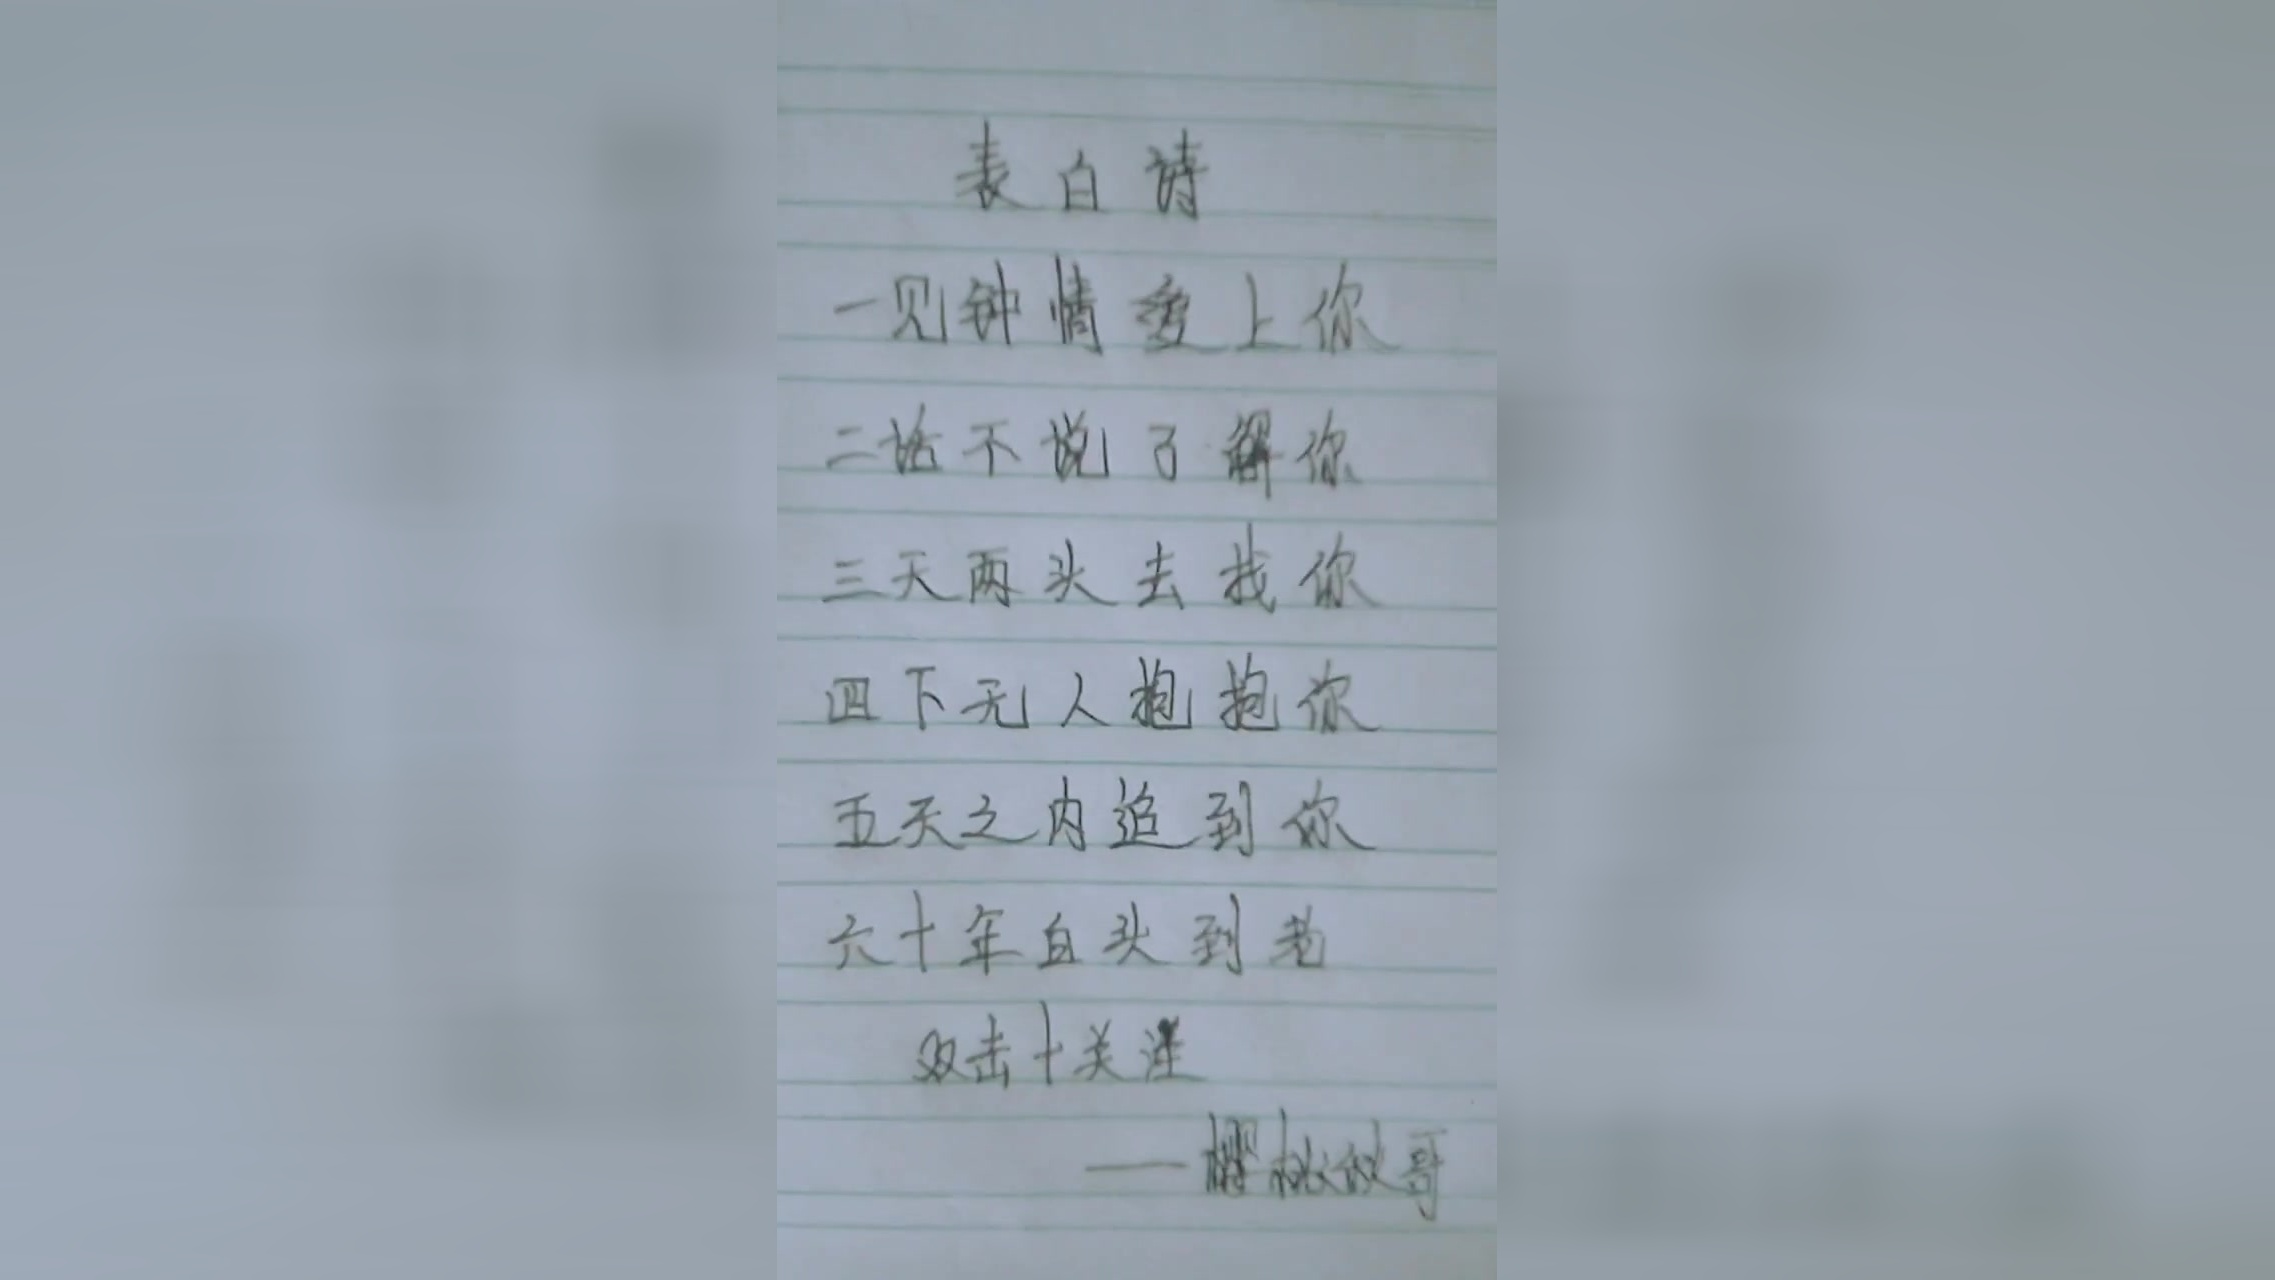 表白诗
一见钟情爱上你
二话不说了解你
三天两头去找你
四下无人抱抱你
五天之内追到你
六十年白头到老
双击十关注
——樱桃 哥